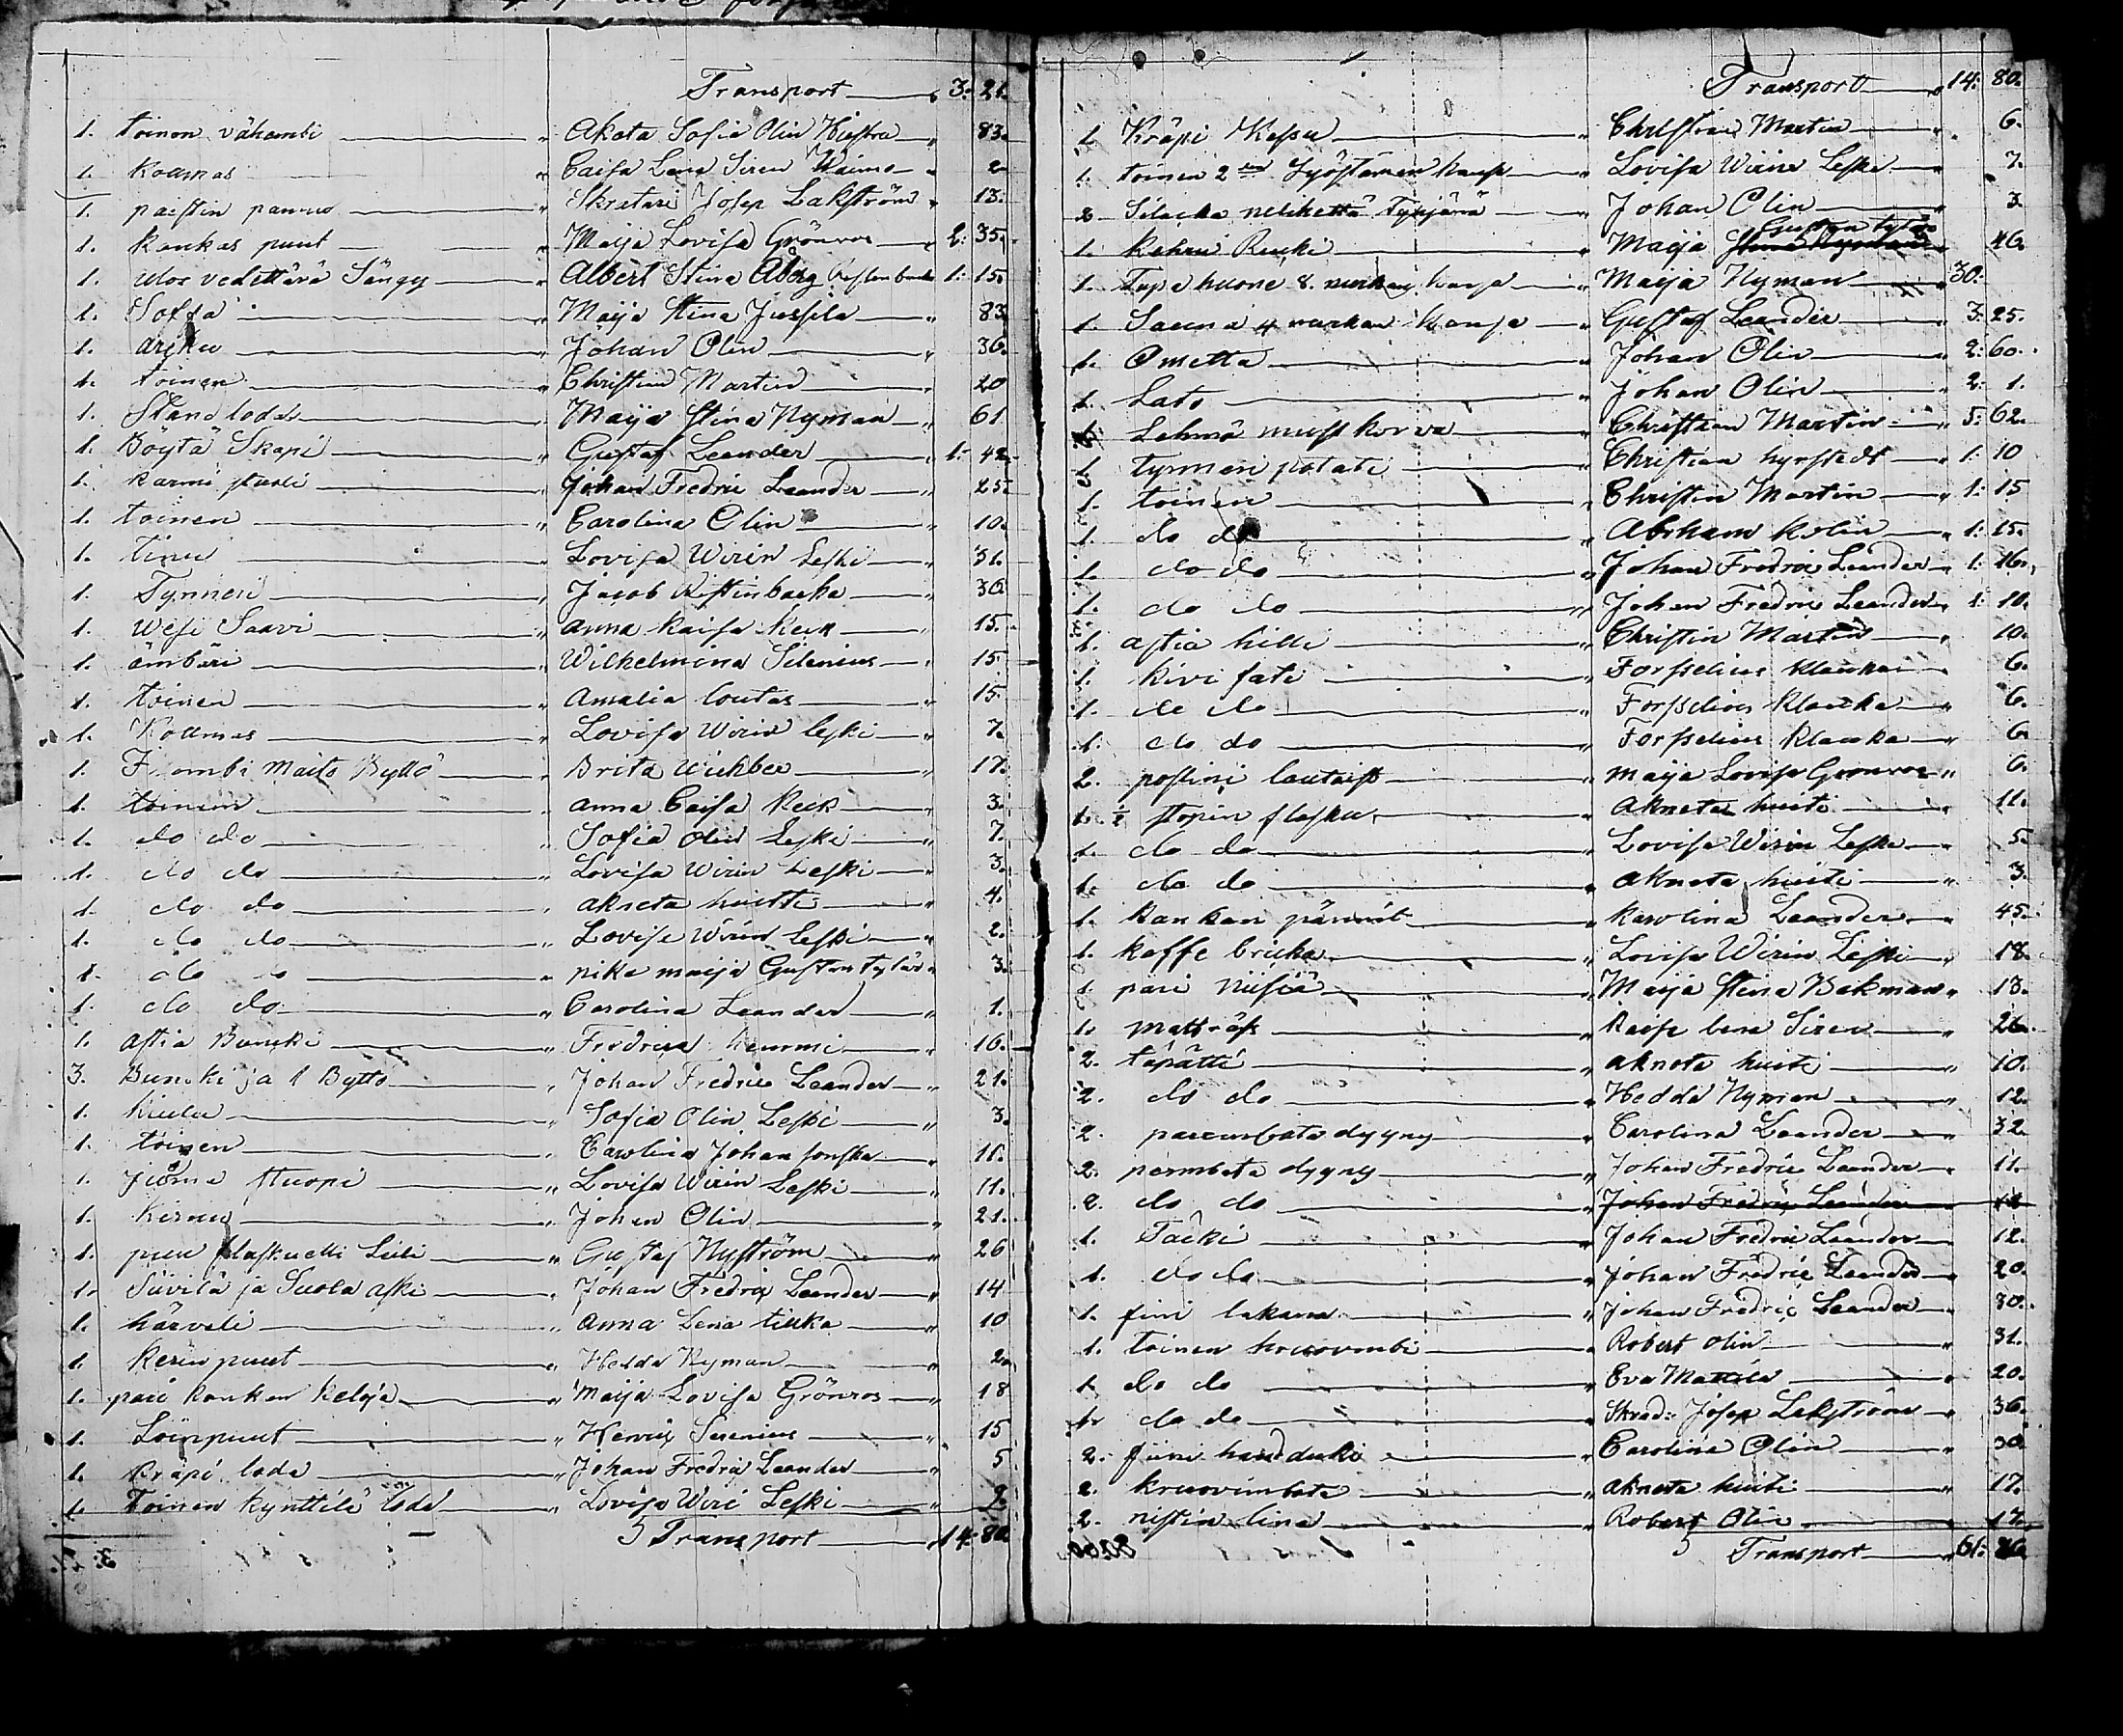 Transport 3: 21.
1. toinen vähembi " Akata Sofia Olin " 83.
1. Koamas " Caisa Lena Siren " 2
1. paistin pannu " Skretari Josep Lakström " 13.
1. Kankas puut " Maija Lovisa Grönroos " 2: 35.
1. ulos vedettävä Sängy " Albert Stina Åberg 1: 15.
1. Soffa " Maija Stina Jussila " 83
1. arkku " Johan Olin " 36.
1. toinen " Christian Martin " 20
1. Stand loda " Maija Stina Nyman " 61
1. Böytä Skapi " Gustaf Leander " 1: 42.
1. karmi stuoli " Johan Fredric Leander " 25.
1. toinen " Carolina Olin " 10.
1. tinu " Lovisa Wirin Leski " 31.
1. Tynneri " Jacob Ristinbacka " 30
1. Wesi Saavi " Anna Kaisa Keck " 15.
1. ämbäri " Wilhelmina Silenius " 15
1. toinen " Amalia Loutas " 15.
1. Koamas " Lovisa Wirin Leski " 7.
1. maito Byttö " Brita Wickbee " 17.
1. toinen " Anna Caisa Keck " 3.
1. do do " Sofia Olin Leski " 7.
1. do do " Lovisa Wirin Leski " 3.
1. do do " akneta huitti " 4.
1. do do " Lovisa Wirin Leski " 2.
1. do do " pika maija Gustavtytär " 3.
1. do do " Carolina Leander " 1.
1. astia Buncki " Fredrica " 16.
3. Buncki ja 1 Byttö " Johan Fredric Leander " 21.
1. kiulu " Sofia Olin Leski " 3.
1. toinen " Carolina Johansonska " 11.
1. Juoma stuopi " Lovisa Wirin Leski " 11.
1. Kirnu " Johan Olin " 21.
1. puu flaskuelli Leili " Gustaf Nyström " 26
1. Siivilä ja Suola aski " Johan Fredric Leander " 14
1. härveli " Anna Lena tiuka " 10
1. kerinpuut " Hedda Nyman " 2.
1. pari kankan keloja " Maija Lovisa Grönros " 18
1. Loinpuut " Henric Serenius " 15
1. Kräpi loda " Johan Fredric Leander " 5
1. Toinen kynttilä loda " Lovisa Wiri Leski " 9.
Transport 14: 80

Transport 14: 80.
1. Kräpi Kassu " Christian Martin " 6.
1. toinen 2 " Lovisa Wirin Leski " 7.
2 Silacka nelikettä tyhjänä " Johan Olin " 3
1. Kehru Rucki " Maija Gustavtytär " 46
1. Tupa huone 8. " Maija Nyman 30:
1. Sauna 4 " Gustaf Leander " 3: 25.
1. Ometta " Johan Olin " 2: 60.
1. Lato " Johan Olin " 2: 1.
1. Lehmä mustkorva " Christian Martin " 5: 62.
1 tynneri potati " Christian hyrstedt " 1: 10
1. toinen " Christin Martin " 1: 15
1. do do " Abrham Kolin " 1: 15.
1. do do " Johan Fredric Leander " 1: 16.
1. do do " Johan Fredric Leander " 1: 10.
1. astia hilli " Christin Martin " 10.
1. kivi fati " Forsselius Klaucka " 6.
1. do do " Forsselius Klaucka " 6.
1. do do " Forsselius Klaucka " 6
2. postini lautaist " Maija Lovisa Grönroos " 6.
1. ½ stopin flasku " Akneta huiti " 11.
1. do do " Lovisa Wirin Leski " 5.
1. do do " Akneta huiti " 3.
1. kankan pärmät " Karolina Leander " 45.
1. kaffe bricka " Lovisa Wirin Leski " 18.
1 pari niisiä " Maija Stina Bakman " 13.
1. mattrås " Kaisa lena Siren " 26.
2. täpätti " akneta huiti " 10.
2. do do " Hedda Nyman " 12.
2. parembata dyyny " Carolina Leander " 32
2. perembata dyyny " Johan Fredric Leander " 11.
2. do do " Johan Fredric Leander
1. Täcki " Johan Fredric Leander " 12.
1. do do " Johan Fredric Leander " 20.
1. fini lakana " Johan Fredric Leander " 30.
1. toinen huonombi " Robert Olin " 31.
1. do do " Eva Mattila " 20.
1. do do " Skrad: Josep Lakström " 36.
2. fiini handduki " Carolina Olin " 30
2. " akneta huiti " 17.
2. ristin lina " Robert Olin " 17.
Transport " 61: